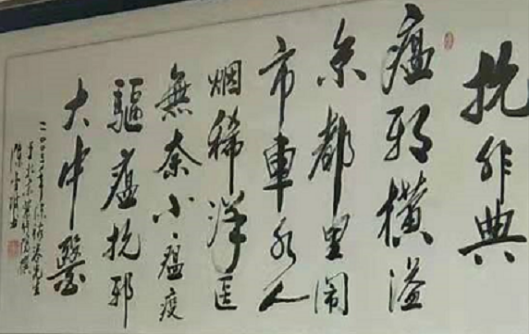 抗非典
瘟邪横溢
京都里闹
市車永人
烟稀洋医
無奈小瘟疫
驅瘟抗邪
大中醫